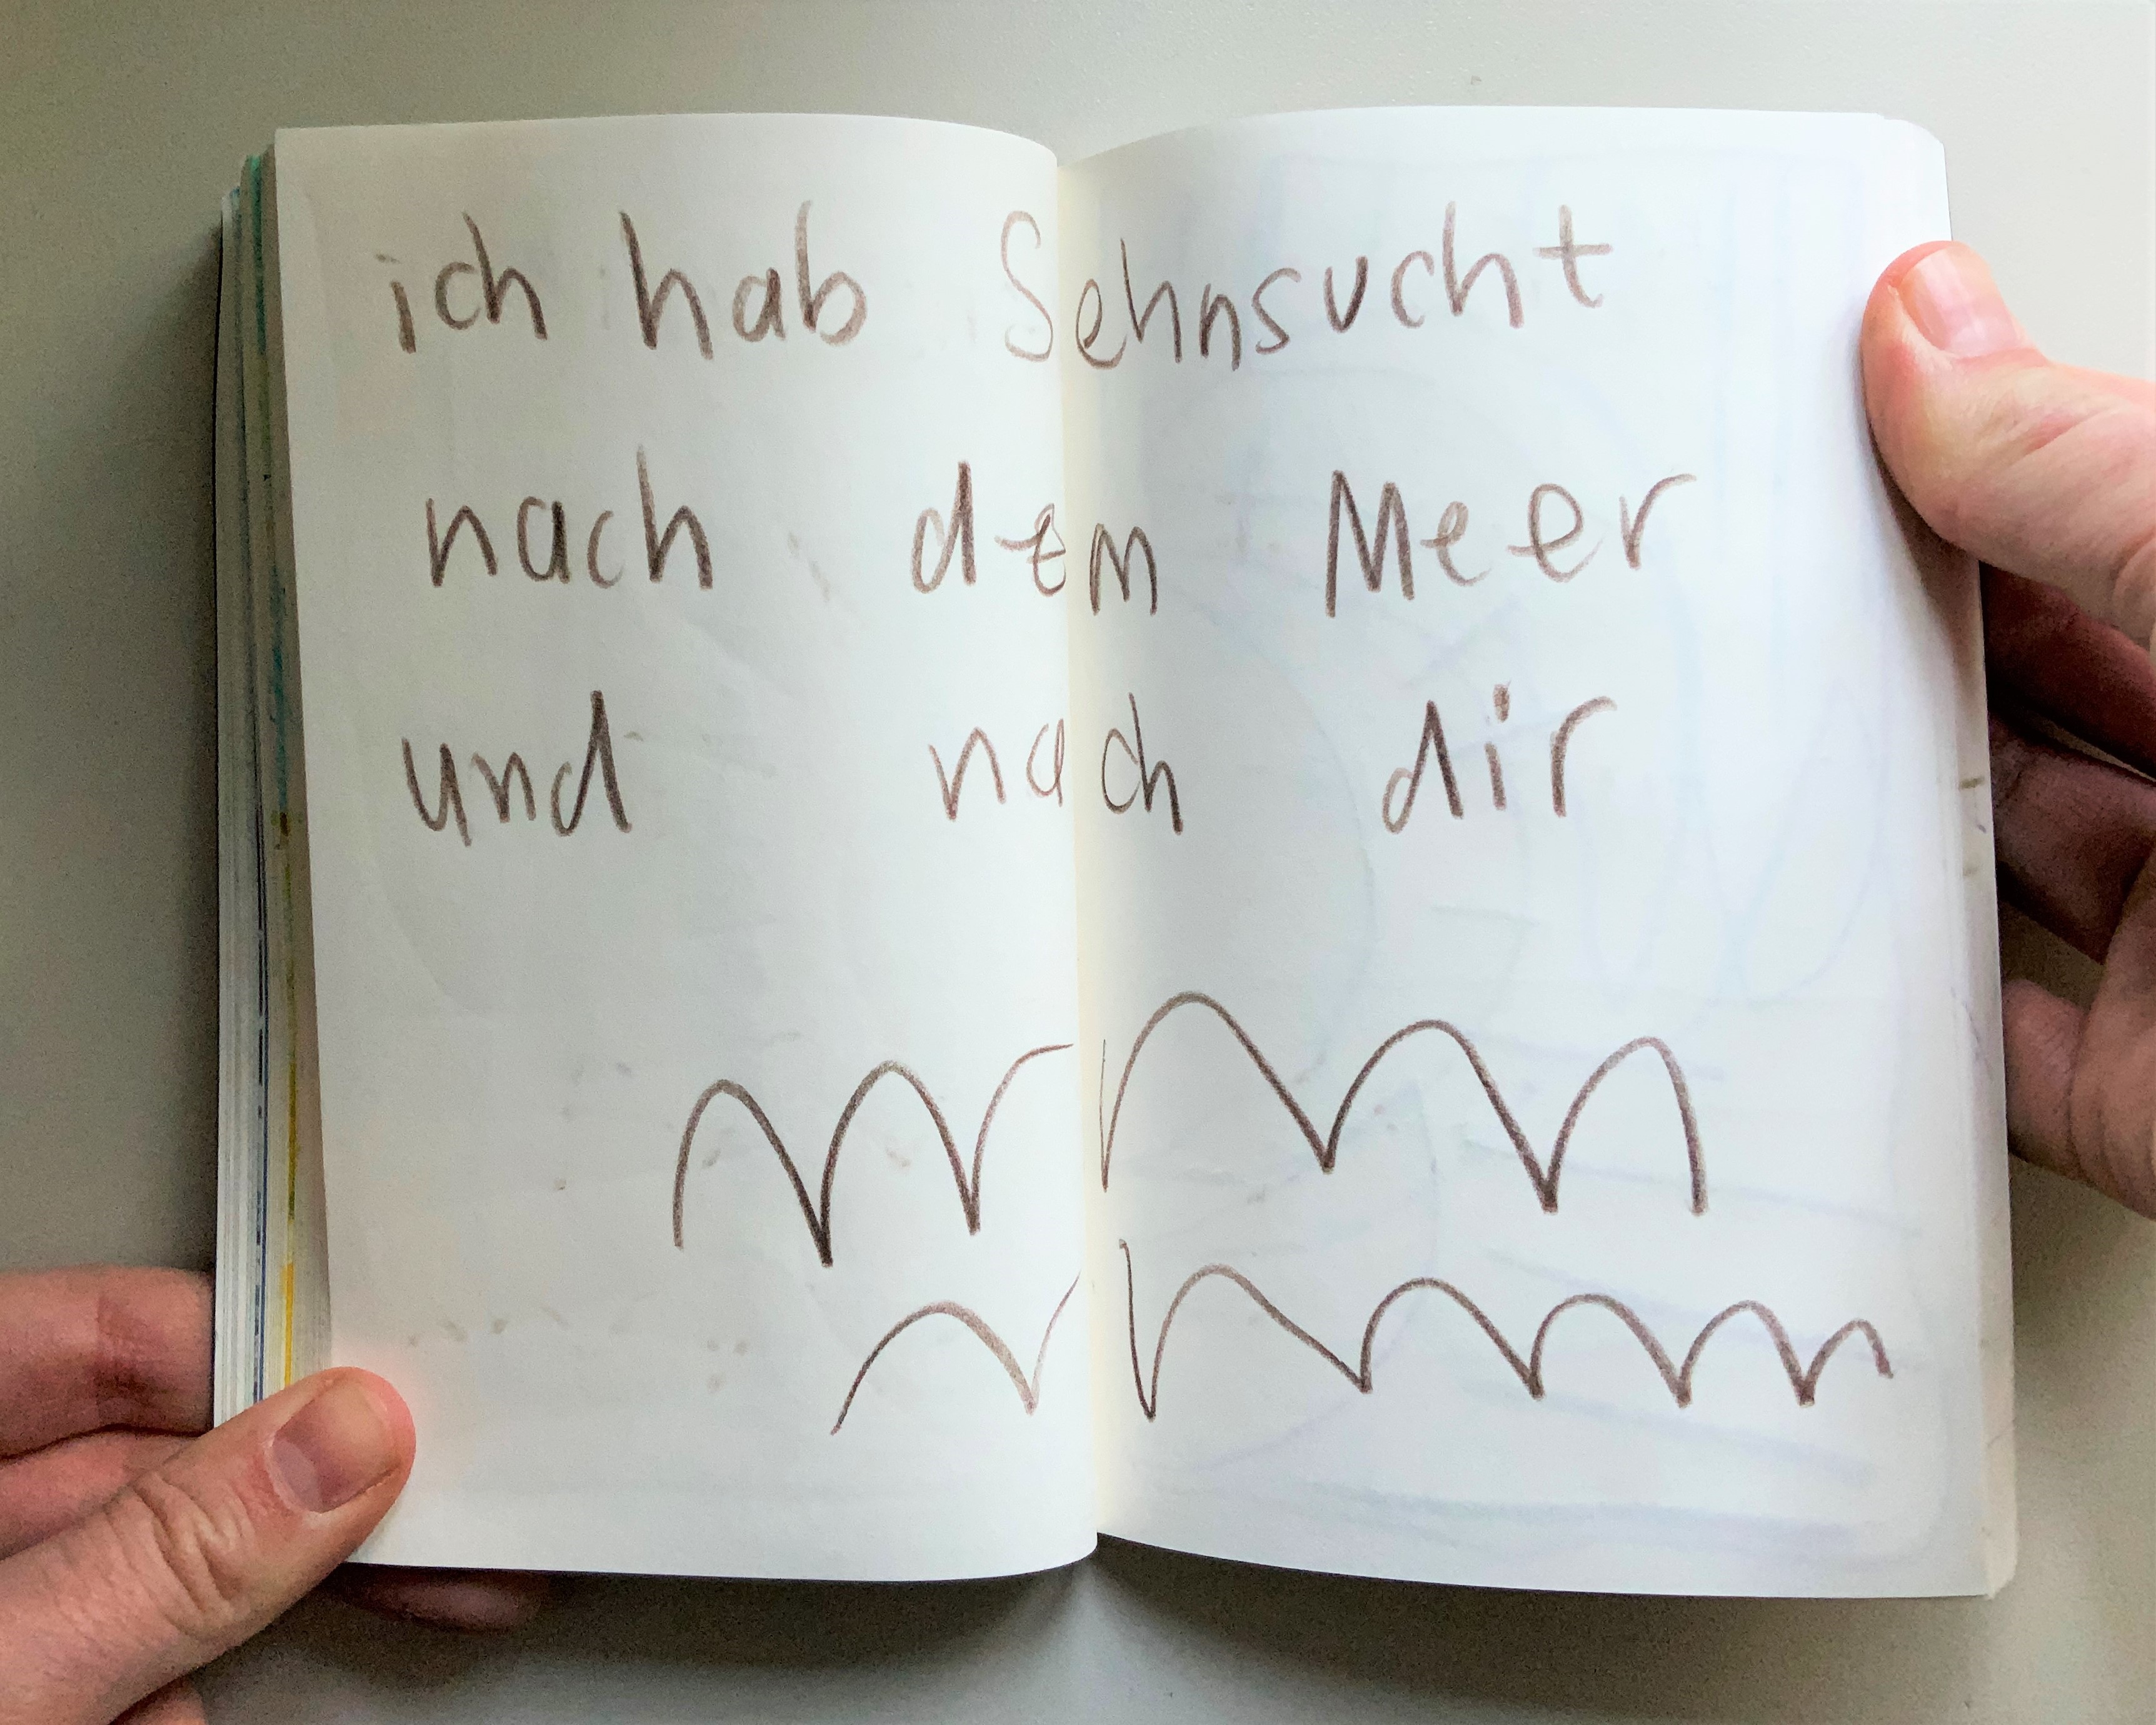 ich hab Sehnsucht
nach dem Meer
und nach dir